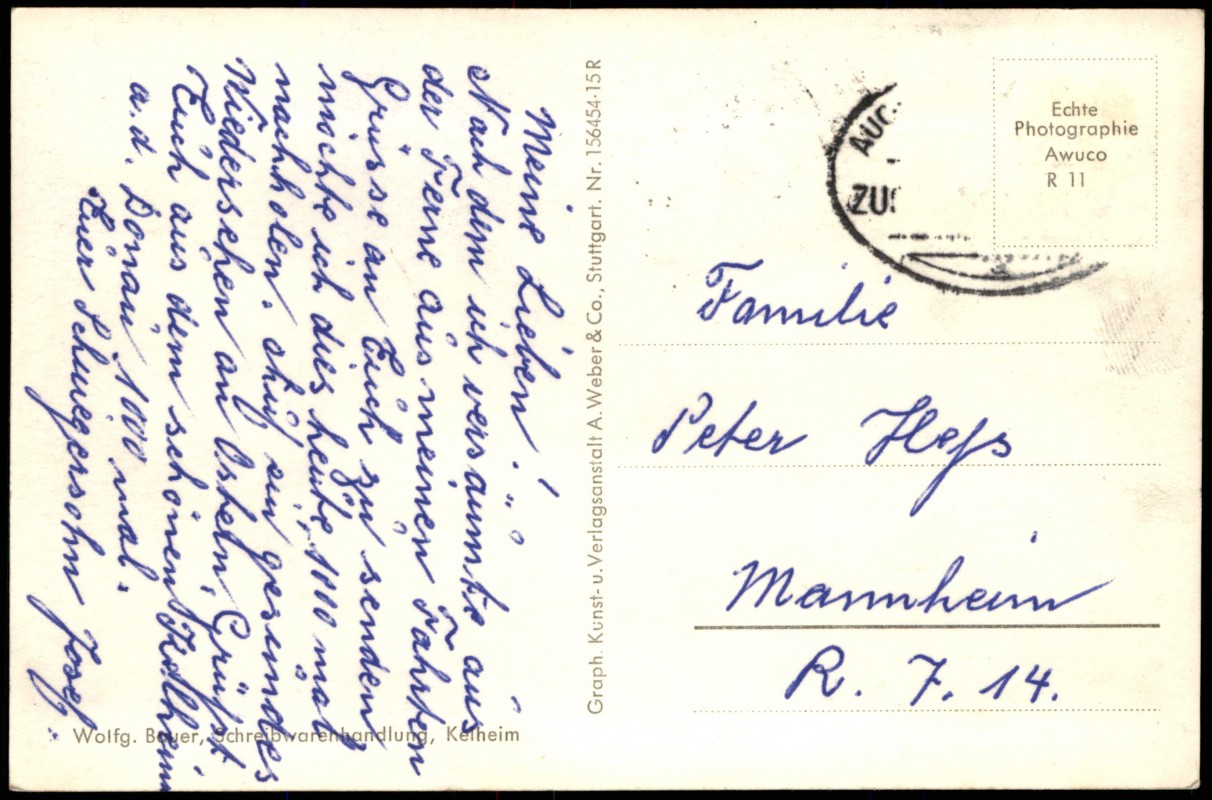 Meine Lieben!
Nach dem ich versäumte aus
der Ferne aus meinen Fahrten
Grüsse an Euch zu senden
möchte ich dies heute 1000 mal
nachholen. Auf ein gesundes
Wiedersehen an Ostern, Grüsst
Euch aus dem schönen Kelheim
a. d. Donau 1000 mal.
Euer Schwiegersohn Josef.
Wolfg. Bauer, Schreibwarenhandlung, Kelheim
Graph. Kunst- u. Verlagsanstalt A. Weber & Co., Stuttgart. Nr. 156454-15 R
ZUG
Echte
Photographie
Awuco
R 11
Familie
Peter Heß
Mannheim
R. 7. 14.